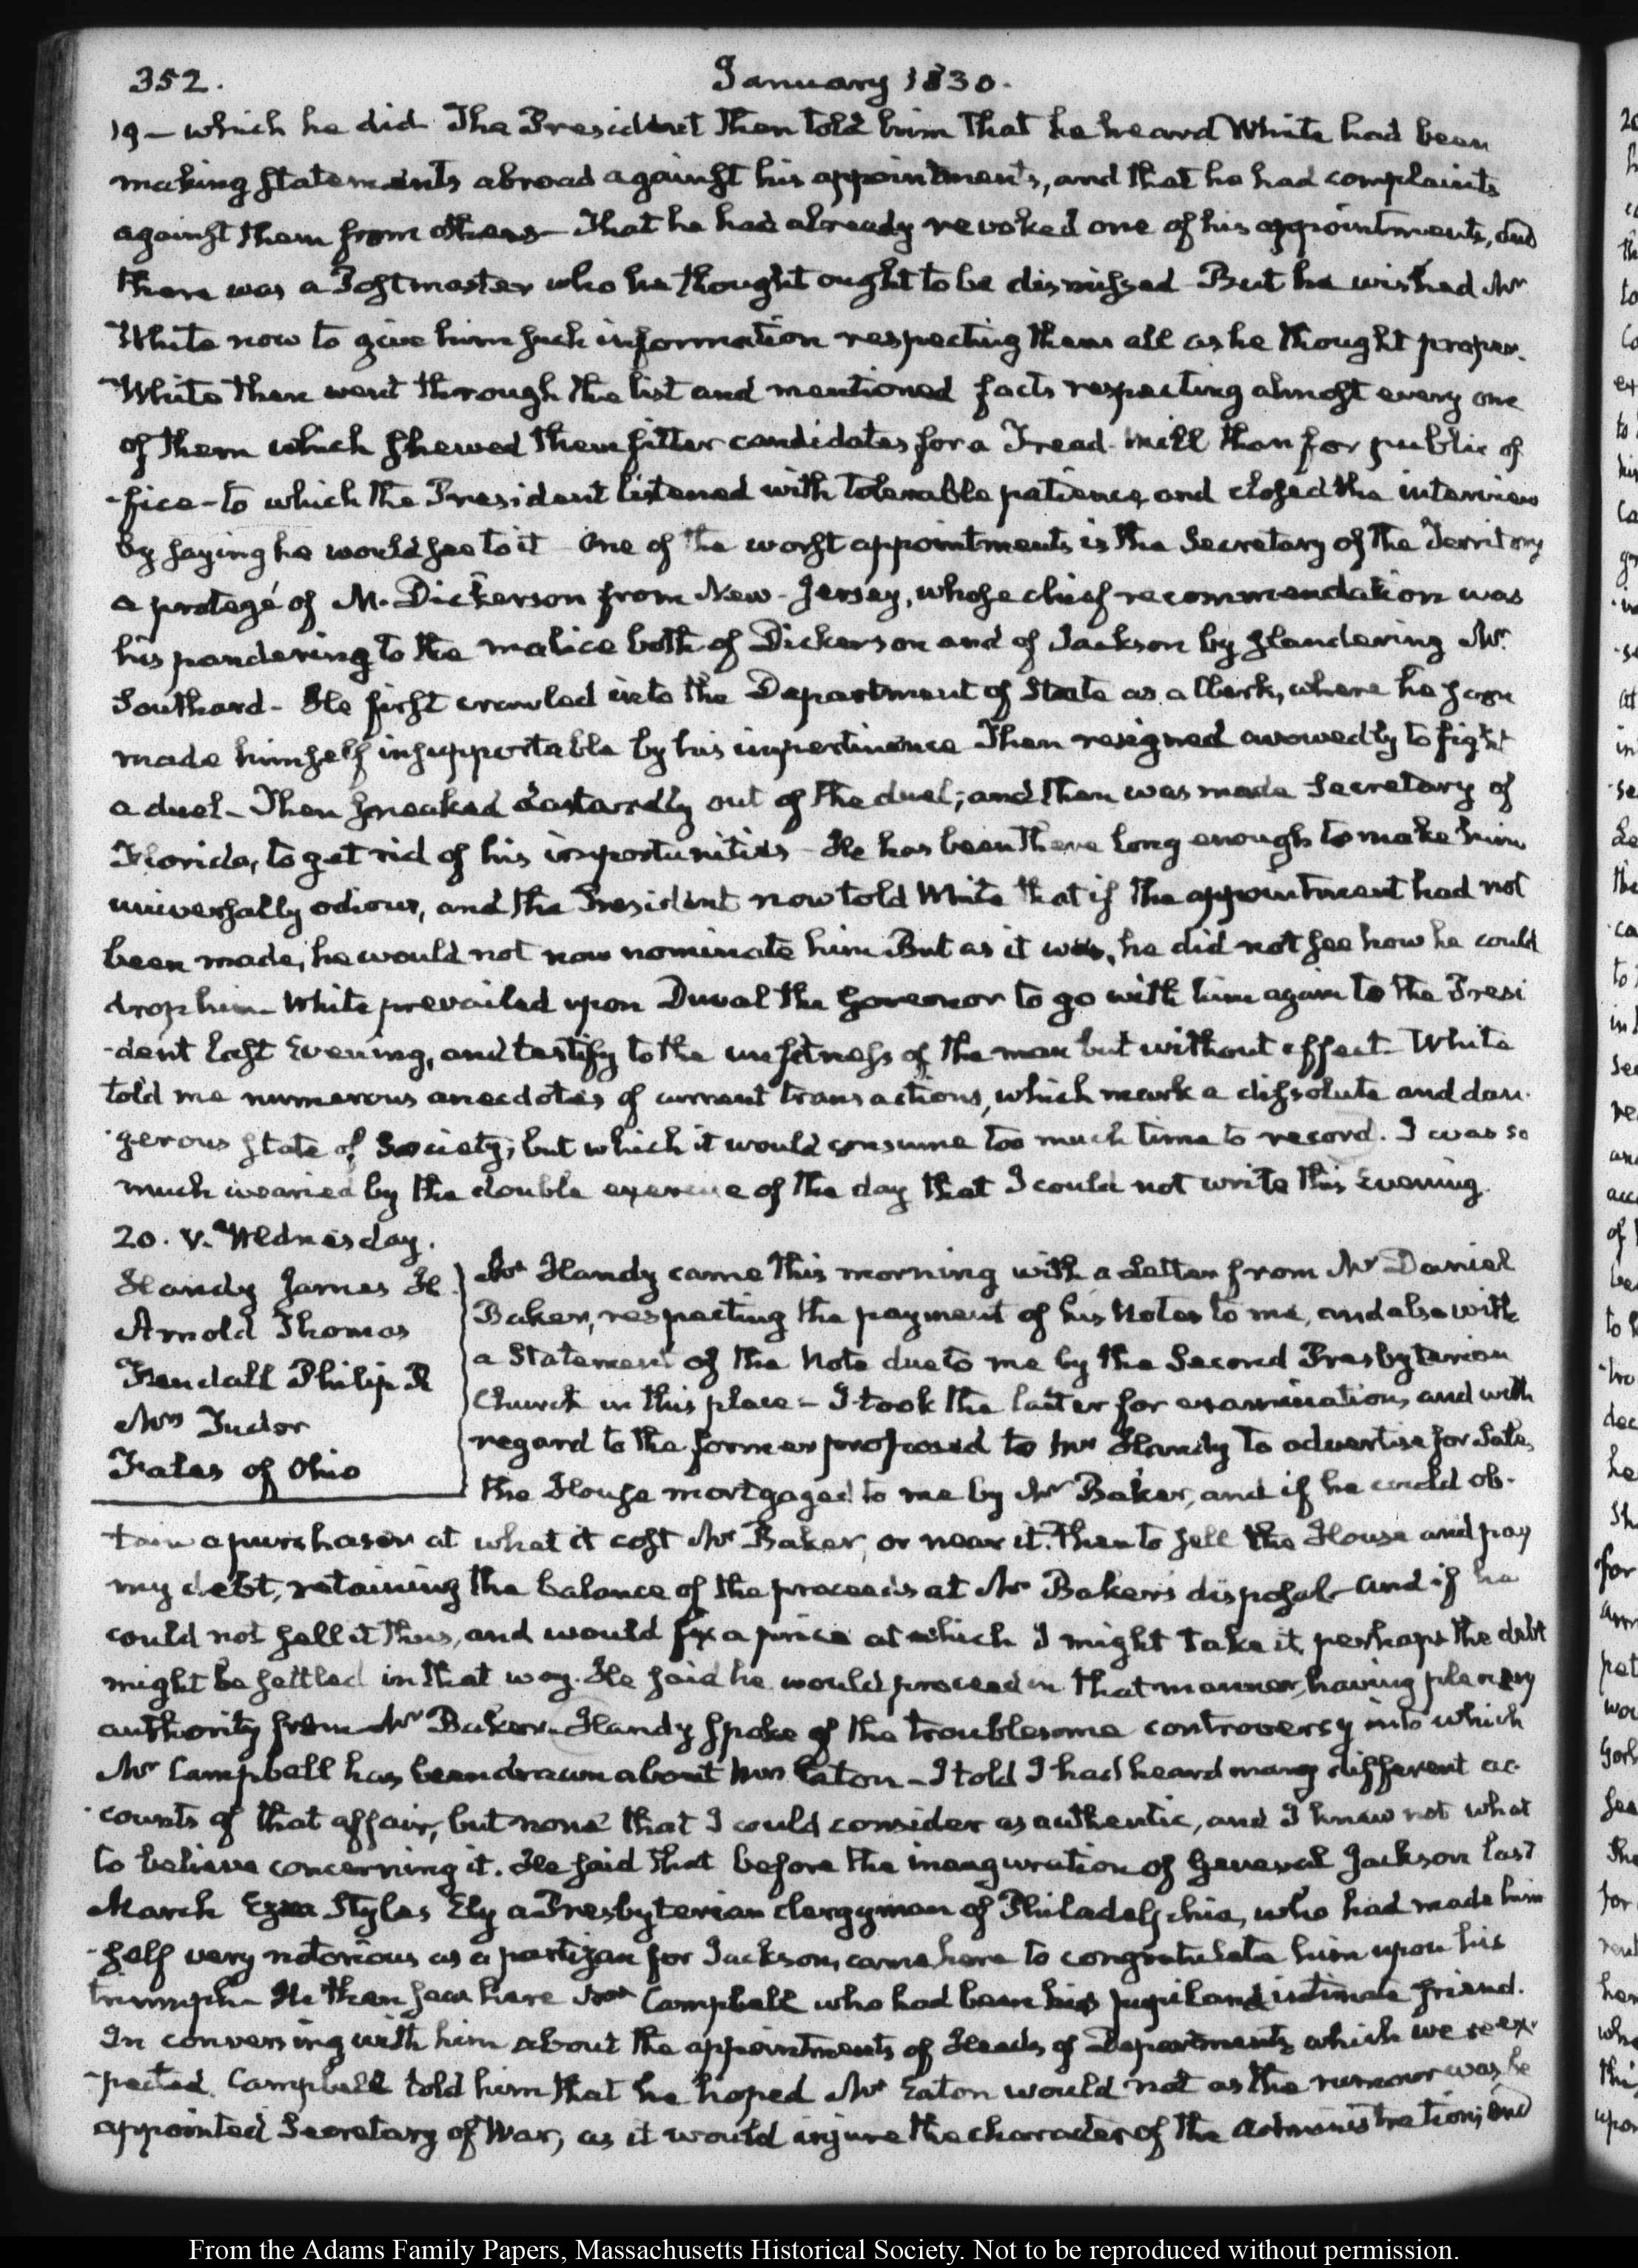 352.
January 1830.
19 — which he did The President then told him that he heard White had been
making statements abroad against his appointments, and that he had complaints
against them from others — That he had already revoked one of his appointments, and
there was a Postmaster who he thought ought to be dismissed — But he wished Mr
White now to give him such information respecting them all as he thought proper.
White then went through the list and mentioned facts respecting almost every one
of them which shewed them fitter candidates for a Tread-mill than for public of
-fice — to which the President listened with tolerable patience, and closed the interview
by saying he would see to it — One of the worst appointments is the Secretary of the Territory
a protegé of M. Dickerson from New-Jersey, whose chief recommendation was
his pandering to the malice both of Dickerson and of Jackson by slandering Mr.
Southard — He first crawled into the Department of State as a Clerk, where he soon
made himself insupportable by his impertinence Then resigned avowedly to fight
a duel — Then sneaked dastardly out of the duel; and then was made Secretary of
Florida, to get rid of his importunities — He has been there long enough to make him
universally odious, and the President now told White that if the appointment had not
been made, he would not now nominate him But as it was, he did not see how he could
drop him — White prevailed upon Duval the Governor to go with him again to the Presi
-dent last Evening, and testify to the unfitness of the man but without effect. White
told me numerous anecdotes of current transactions, which mark a dissolute and dan-
-gerous state of Society; but which it would consume too much time to record. I was so
much wearied by the double exercise of the day that I could not write this Evening.
20. V. Wednesday.
Handy James H.
Arnold Thomas
Fendall Philip R
Mrs Tudor
Fates of Ohio
Mr Handy came this morning with a Letter from Mr Daniel
Baker, respecting the payment of his Notes to me, and also with
a Statement of the Note due to me by the Second Presbyterian
Church in this place — I took the latter for examination, and with
regard to the former proposed to Mr Handy to advertise for Sale,
the House mortgaged to me by Mr Baker, and if he could ob-
tain a purchaser at what it cost Mr Baker, or near it. Then to sell the House and pay
my debt, retaining the balance of the proceeds at Mr Baker's disposal — and if he
could not sell it thus, and would fix a price at which I might take it, perhaps the debt
might be settled in that way. He said he would proceed in that manner, having plenary
authority from Mr Baker — Handy spoke of the troublesome controversy into which
Mr Campbell has been drawn about Mrs Eaton — I told I had heard many different ac-
-counts of that affair, but none that I could consider as authentic, and I knew not what
to believe concerning it. He said that before the inauguration of General Jackson last
March Ezra Styles Ely a Presbyterian clergyman of Philadelphia, who had made him
-self very notorious as a partizan for Jackson, came here to congratulate him upon his
triumph — He then saw here Mr Campbell who had been his pupil and intimate friend.
In conversing with him about the appointments of Heads of Departments which were ex-
-pected, Campbell told him that he hoped Mr Eaton would not as the rumour was be
appointed Secretary of War, as it would injure the character of the administration; and
From the Adams Family Papers, Massachusetts Historical Society. Not to be reproduced without permission.